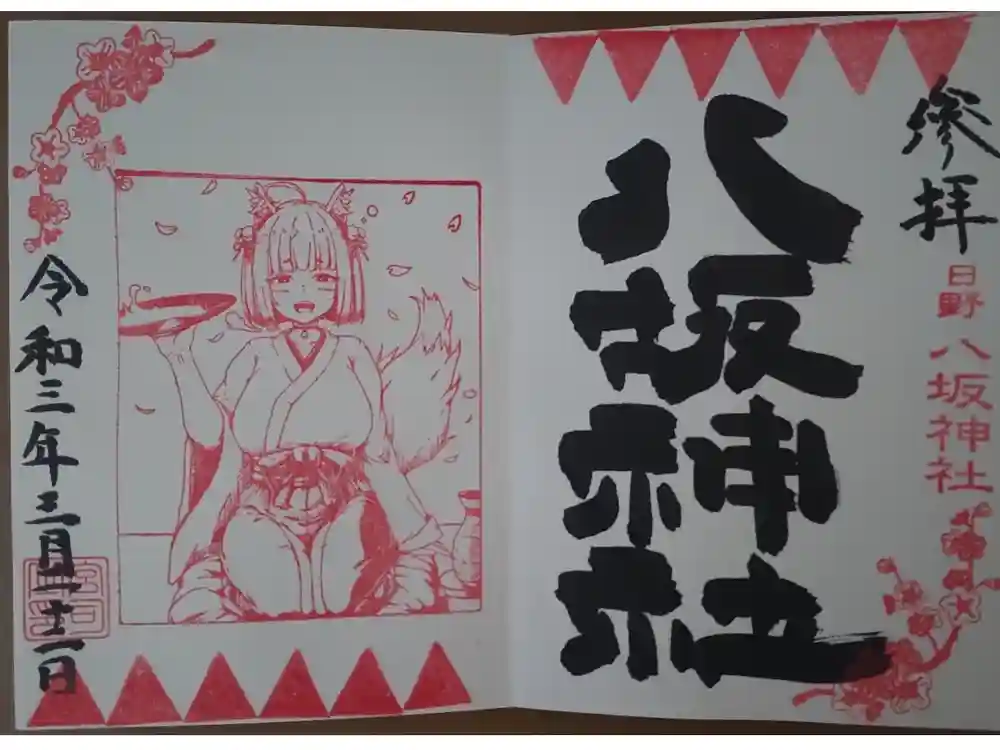 参拝
日野
八坂神社
八坂神社
令和三年三月二十二日